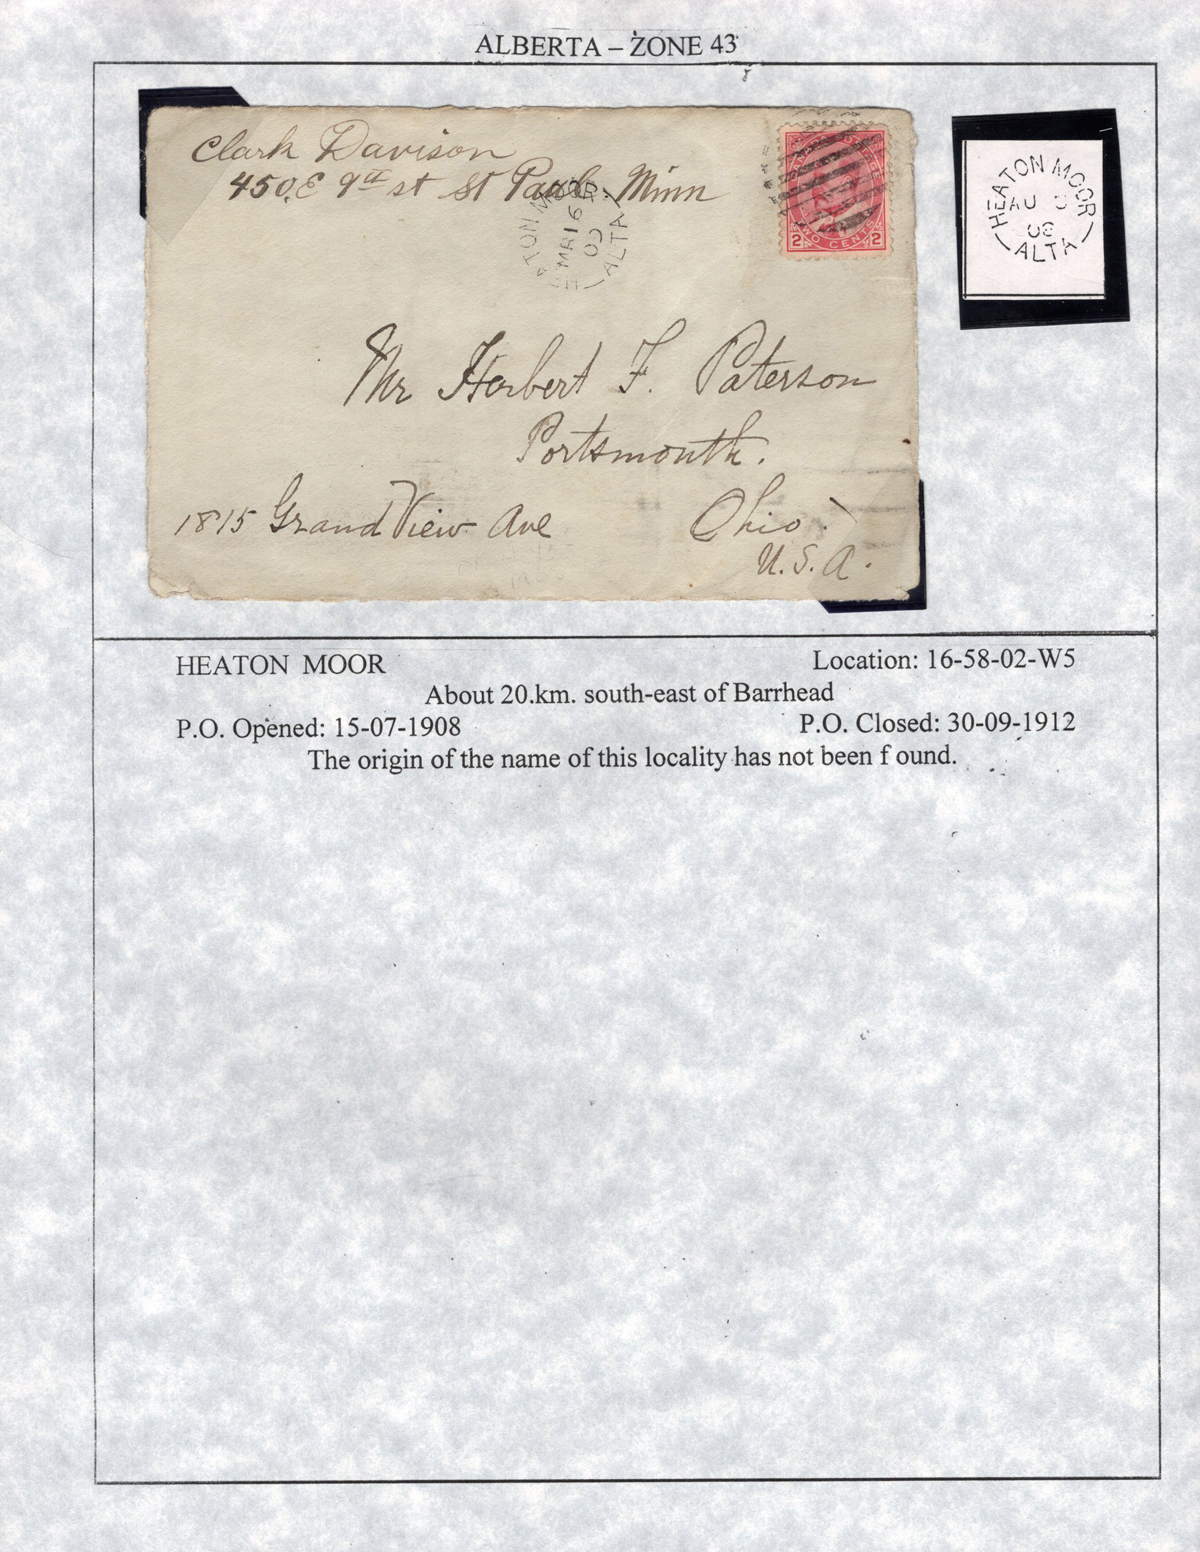 ALBERTA – ZONE 43
Clark Davison
450.E 9th st St Paul. Minn
MR 16
09
ALTA
TWO CENTS
2 2
HEATON MOOR
AU
08
ALTA
Mr Herbert F. Paterson
Portsmouth.
1815 Grand View Ave
Ohio.
U.S.A.
HEATON MOOR
Location: 16-58-02-W5
About 20.km. south-east of Barrhead
P.O. Opened: 15-07-1908
P.O. Closed: 30-09-1912
The origin of the name of this locality has not been f ound.